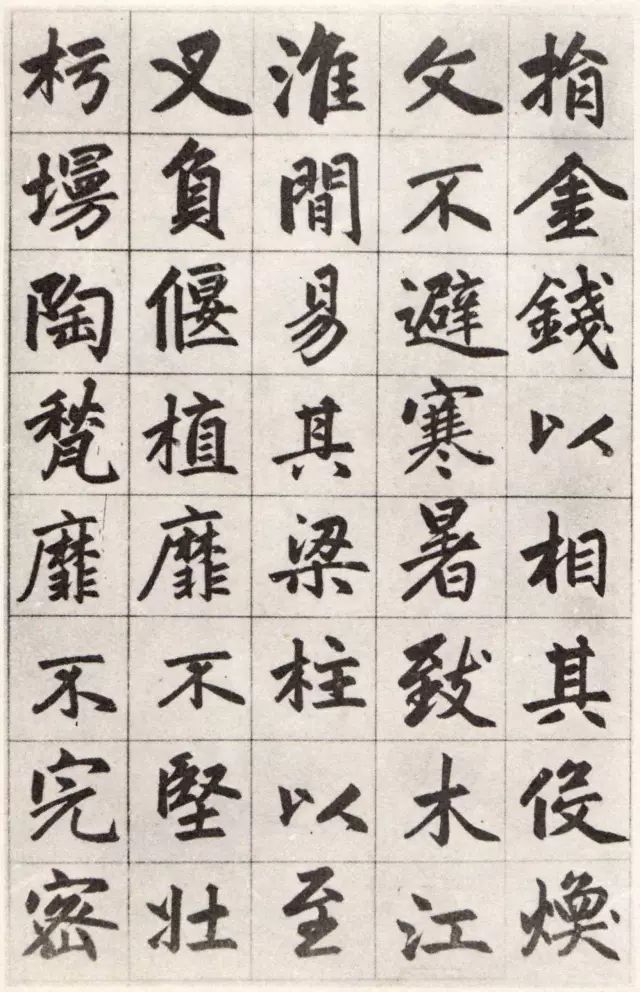 捐金錢以相其役煥
文不避寒暑致木江
淮間易其梁柱以至
叉負偃植靡不堅壯
杇墁陶甃靡不完密